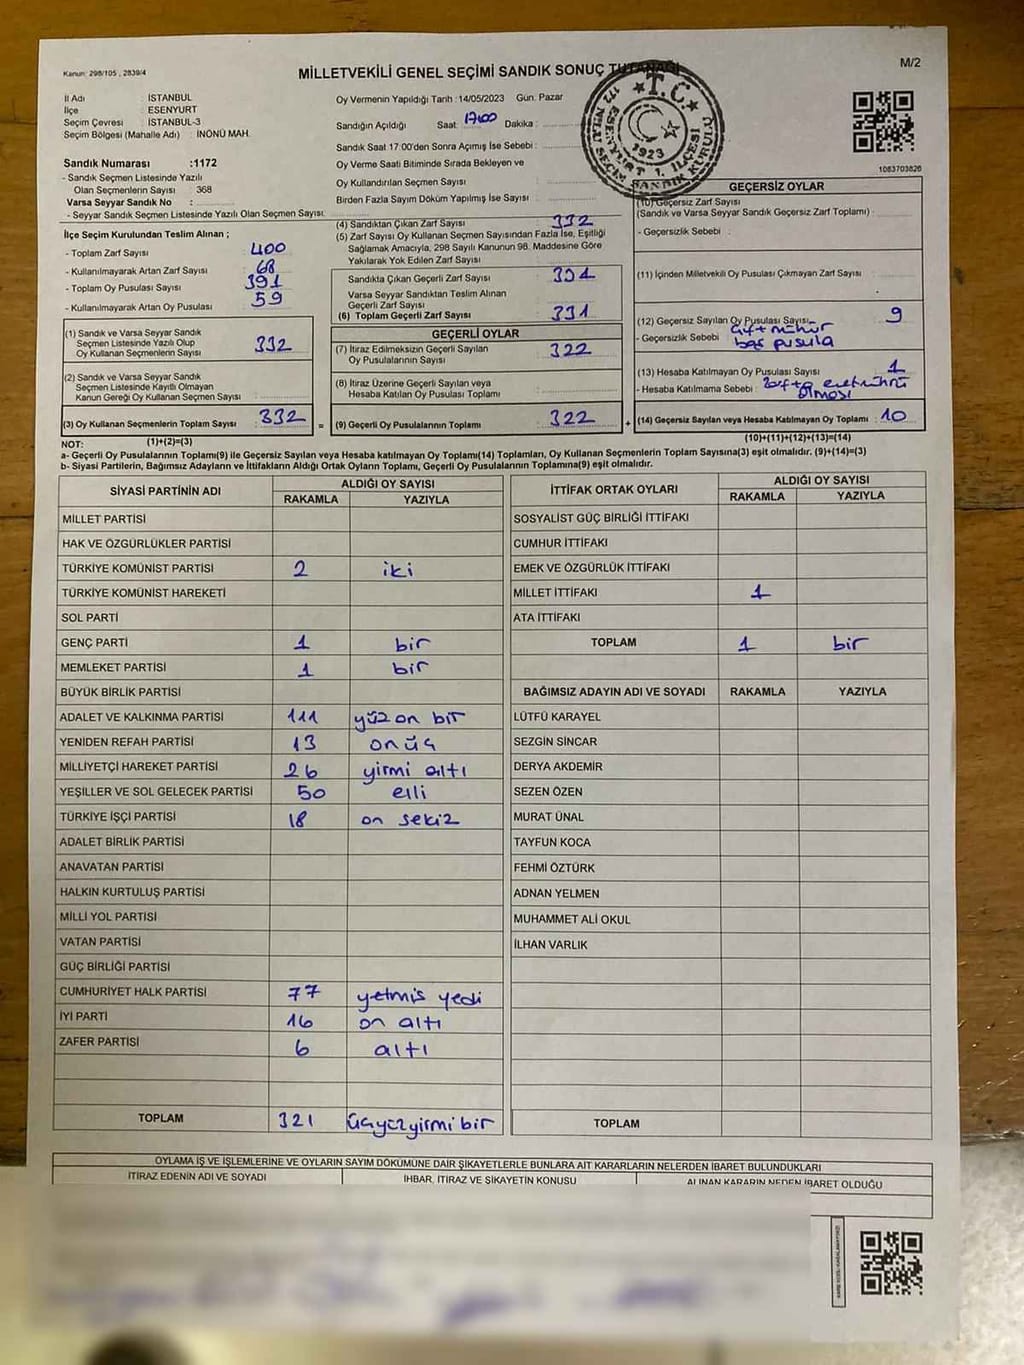 Kanun: 298/105 , 2839/4
MİLLETVEKİLİ GENEL SEÇİMİ SANDIK SONUÇ TUTANAĞI
M/2
İl Adı : İSTANBUL
İlçe : ESENYURT
Seçim Çevresi : İSTANBUL-3
Seçim Bölgesi (Mahalle Adı) : İNÖNÜ MAH.
Oy Vermenin Yapıldığı Tarih : 14/05/2023 Gün: Pazar
Sandığın Açıldığı Saat: 17:00 Dakika :
Sandık Saat 17:00'den Sonra Açımış İse Sebebi :
Oy Verme Saati Bitiminde Sırada Bekleyen ve
Oy Kullandırılan Seçmen Sayısı :
Birden Fazla Sayım Döküm Yapılmış İse Sayısı :
T.C.
1923
ESENYURT 1. İLÇESİ
SANDIK KURULU
1083703826
Sandık Numarası :1172
- Sandık Seçmen Listesinde Yazılı
Olan Seçmenlerin Sayısı : 368
Varsa Seyyar Sandık No :
- Seyyar Sandık Seçmen Listesinde Yazılı Olan Seçmen Sayısı:
İlçe Seçim Kurulundan Teslim Alınan ;
- Toplam Zarf Sayısı : 400
- Kullanılmayarak Artan Zarf Sayısı : 68
- Toplam Oy Pusulası Sayısı : 391
- Kullanılmayarak Artan Oy Pusulası : 59
(1) Sandık ve Varsa Seyyar Sandık
Seçmen Listesinde Yazılı Olup
Oy Kullanan Seçmenlerin Sayısı : 332
(2) Sandık ve Varsa Seyyar Sandık
Seçmen Listesinde Kayıtlı Olmayan
Kanun Gereği Oy Kullanan Seçmen Sayısı :
(3) Oy Kullanan Seçmenlerin Toplam Sayısı : 332
(4) Sandıktan Çıkan Zarf Sayısı : 332
(5) Zarf Sayısı Oy Kullanan Seçmen Sayısından Fazla İse, Eşitliği
Sağlamak Amacıyla, 298 Sayılı Kanunun 98. Maddesine Göre
Yakılarak Yok Edilen Zarf Sayısı :
Sandıkta Çıkan Geçerli Zarf Sayısı : 331
Varsa Seyyar Sandıktan Teslim Alınan
Geçerli Zarf Sayısı :
(6) Toplam Geçerli Zarf Sayısı : 331
GEÇERLİ OYLAR
(7) İtiraz Edilmeksizin Geçerli Sayılan
Oy Pusulalarının Sayısı : 322
(8) İtiraz Üzerine Geçerli Sayılan veya
Hesaba Katılan Oy Pusulası Toplamı :
= (9) Geçerli Oy Pusulalarının Toplamı : 322
GEÇERSİZ OYLAR
(10) Geçersiz Zarf Sayısı
(Sandık ve Varsa Seyyar Sandık Geçersiz Zarf Toplamı) :
- Geçersizlik Sebebi :
(11) İçinden Milletvekili Oy Pusulası Çıkmayan Zarf Sayısı :
(12) Geçersiz Sayılan Oy Pusulası Sayısı : 9
- Geçersizlik Sebebi : çift mühür
boş pusula
(13) Hesaba Katılmayan Oy Pusulası Sayısı : 1
- Hesaba Katılmama Sebebi : zarfta evet mührü
olması
+ (14) Geçersiz Sayılan veya Hesaba Katılmayan Oy Toplamı : 10
NOT: (1)+(2)=(3)
(10)+(11)+(12)+(13)=(14)
a- Geçerli Oy Pusulalarının Toplam(9) ile Geçersiz Sayılan veya Hesaba katılmayan Oy Toplamı(14) Toplamları, Oy Kullanan Seçmenlerin Toplam Sayısına(3) eşit olmalıdır. (9)+(14)=(3)
b- Siyasi Partilerin, Bağımsız Adayların ve İttifakların Aldığı Ortak Oyların Toplamı, Geçerli Oy Pusulalarının Toplamına(9) eşit olmalıdır.
SİYASİ PARTİNİN ADI ALDIĞI OY SAYISI
RAKAMLA YAZIYLA
MİLLET PARTİSİ
HAK VE ÖZGÜRLÜKLER PARTİSİ
TÜRKİYE KOMÜNİST PARTİSİ 2 iki
TÜRKİYE KOMÜNİST HAREKETİ
SOL PARTİ
GENÇ PARTİ 1 bir
MEMLEKET PARTİSİ 1 bir
BÜYÜK BİRLİK PARTİSİ
ADALET VE KALKINMA PARTİSİ 111 yüz on bir
YENİDEN REFAH PARTİSİ 13 onüç
MİLLİYETÇİ HAREKET PARTİSİ 26 yirmi altı
YEŞİLLER VE SOL GELECEK PARTİSİ 50 elli
TÜRKİYE İŞÇİ PARTİSİ 18 on sekiz
ADALET BİRLİK PARTİSİ
ANAVATAN PARTİSİ
HALKIN KURTULUŞ PARTİSİ
MİLLİ YOL PARTİSİ
VATAN PARTİSİ
GÜÇ BİRLİĞİ PARTİSİ
CUMHURİYET HALK PARTİSİ 77 yetmis yedi
İYİ PARTİ 16 on altı
ZAFER PARTİSİ 6 altı
TOPLAM 321 üçyüzyirmi bir
İTTİFAK ORTAK OYLARI ALDIĞI OY SAYISI
RAKAMLA YAZIYLA
SOSYALİST GÜÇ BİRLİĞİ İTTİFAKI
CUMHUR İTTİFAKI
EMEK VE ÖZGÜRLÜK İTTİFAKI
MİLLET İTTİFAKI 1
ATA İTTİFAKI
TOPLAM 1 bir
BAĞIMSIZ ADAYIN ADI VE SOYADI RAKAMLA YAZIYLA
LÜTFÜ KARAYEL
SEZGİN SİNCAR
DERYA AKDEMİR
SEZEN ÖZEN
MURAT ÜNAL
TAYFUN KOCA
FEHMİ ÖZTÜRK
ADNAN YELMEN
MUHAMMET ALİ OKUL
İLHAN VARLIK
TOPLAM
OYLAMA İŞ VE İŞLEMLERİNE VE OYLARIN SAYIM DÖKÜMÜNE DAİR ŞİKAYETLERLE BUNLARA AİT KARARLARIN NELERDEN İBARET BULUNDUKLARI
İTİRAZ EDENİN ADI VE SOYADI İHBAR, İTİRAZ VE ŞİKAYETİN KONUSU ALINAN KARARIN NEDEN İBARET OLDUĞU